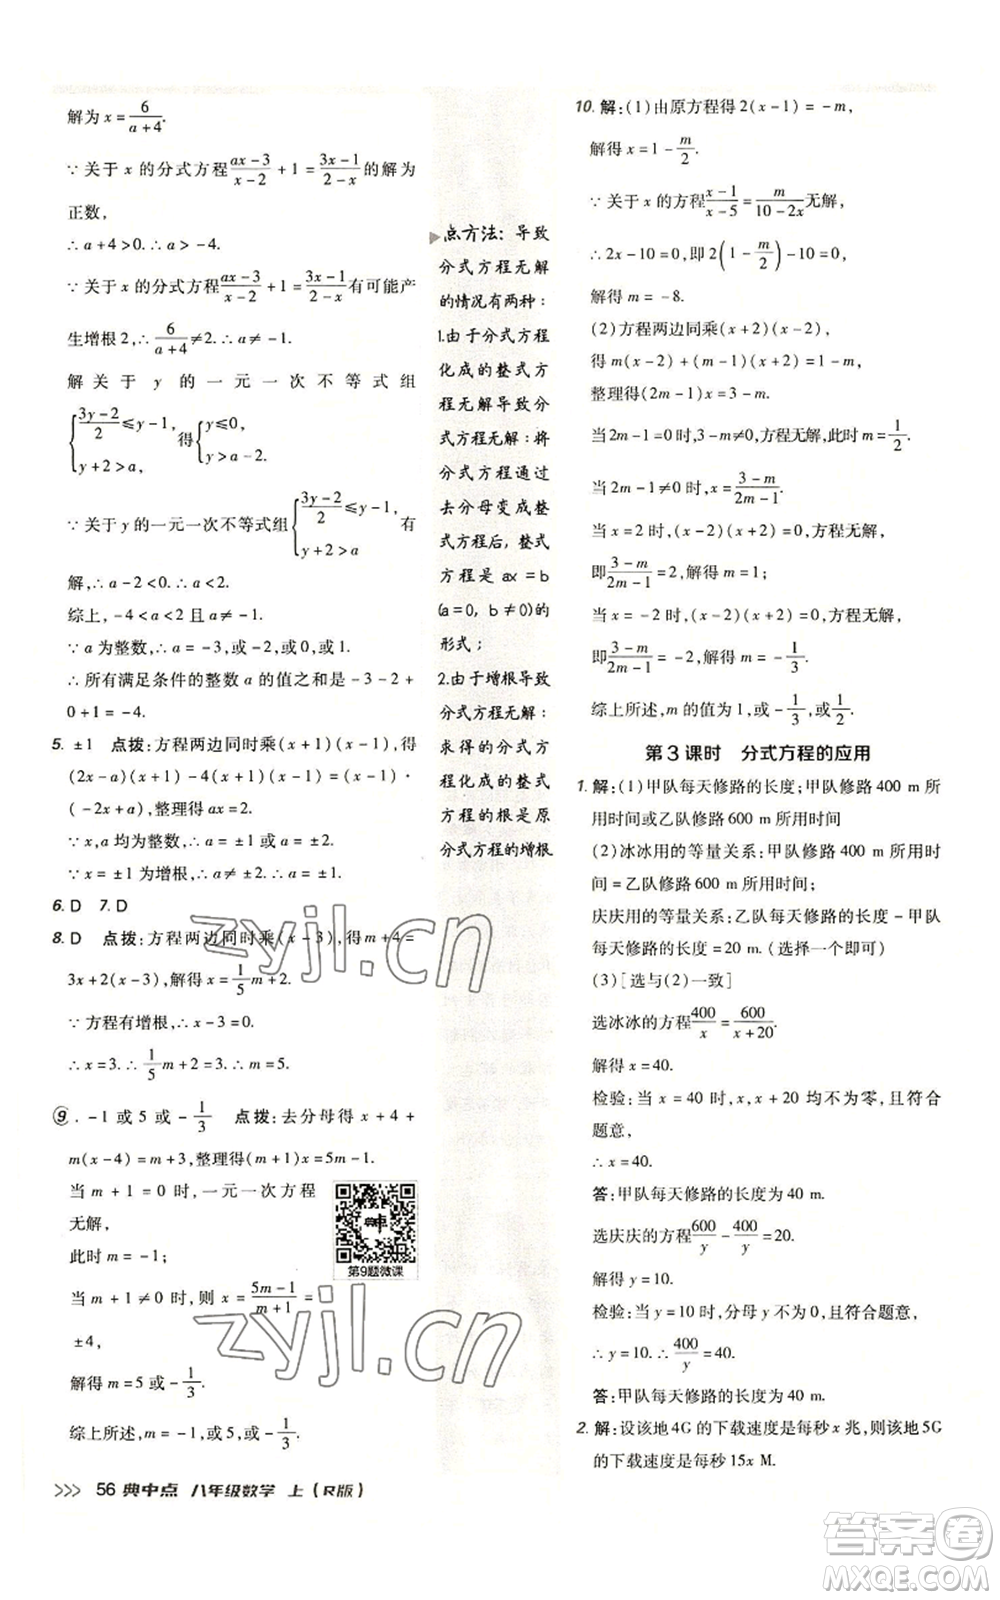 解为x=6/(a+4).
∵关于x的分式方程(ax-3)/(x-2)+1=(3x-1)/(2-x)的解为
正数,
∴a+4>0.∴a>-4.
∵关于x的分式方程(ax-3)/(x-2)+1=(3x-1)/(2-x)有可能产
生增根2,∴6/(a+4)≠2.∴a≠-1.
解关于y的一元一次不等式组
{(3y-2)/2≤y-1, y+2>a, 得{y≤0, y>a-2.
∵关于y的一元一次不等式组{(3y-2)/2≤y-1, y+2>a 有
解,∴a-2<0.∴a<2.
综上,-4<a<2且a≠-1.
∵a为整数,∴a=-3,或-2,或0,或1.
∴所有满足条件的整数a的值之和是-3-2+
0+1=-4.
5. ±1 点拨:方程两边同时乘(x+1)(x-1),得
(2x-a)(x-1)-(x+1)(x-1)=(x-1)·
(-2x+a),整理得ax=2.
∵x,a均为整数,∴a=±1,或a=±2.
∵x=±1为增根,∴a≠±2.∴a=±1.
6. D 7. D
8. D 点拨:方程两边同时乘(x-3),得m+4=
3x+2(x-3),解得x=1/5m+2.
∵方程有增根,∴x-3=0.
∴x=3.∴1/5m+2=3.∴m=5.
⑨. -1或5或-1/3 点拨:去分母得x+4+
m(x-4)=m+3,整理得(m+1)x=5m-1.
当m+1=0时,一元一次方程
无解,
此时m=-1;
当m+1≠0时,则x=(5m-1)/(m+1)=
±4,
解得m=5或-1/3.
综上所述,m=-1,或5,或-1/3.
第9题微课
点方法:导致
分式方程无解
的情况有两种:
1.由于分式方程
化成的整式方
程无解导致分
式方程无解:将
分式方程通过
去分母变成整
式方程后,整式
方程是ax=b
(a=0,b≠0)的
形式;
2.由于增根导致
分式方程无解:
求得的分式方
程化成的整式
方程的根是原
分式方程的增根
10. 解:(1)由原方程得2(x-1)=-m,
解得x=1-m/2.
∵关于x的方程(x-1)/(x-5)=m/(10-2x)无解,
∴2x-10=0,即2(1-m/2)-10=0,
解得m=-8.
(2)方程两边同乘(x+2)(x-2),
得m(x-2)+(m+1)(x+2)=5,
整理得(2m-1)x=3-m.
当2m-1=0时,3-m≠0,方程无解,此时m=1/2.
当2m-1≠0时,x=(3-m)/(2m-1).
当x=2时,(x-2)(x+2)=0,方程无解,
即(3-m)/(2m-1)=2,解得m=1;
当x=-2时,(x-2)(x+2)=0,方程无解,
即(3-m)/(2m-1)=-2,解得m=-1/3.
综上所述,m的值为1,或-1/3,或1/2.
第3课时 分式方程的应用
1. 解:(1)甲队每天修路的长度;甲队修路400 m所
用时间或乙队修路600 m所用时间
(2)冰冰用的等量关系:甲队修路400 m所用时
间=乙队修路600 m所用时间;
庆庆用的等量关系:乙队每天修路的长度-甲队
每天修路的长度=20 m.(选择一个即可)
(3)[选与(2)一致]
选冰冰的方程400/x=600/(x+20).
解得x=40.
检验:当x=40时,x,x+20均不为零,且符合
题意,
∴x=40.
答:甲队每天修路的长度为40 m.
选庆庆的方程600/y-400/y=20.
解得y=10.
检验:当y=10时,分母y不为0,且符合题意,
∴y=10.∴400/y=40.
答:甲队每天修路的长度为40 m.
2. 解:设该地4G的下载速度是每秒x兆,则该地5G
的下载速度是每秒15x M.
>>> 56 典中点 八年级数学 上(R版)
zyjl.cn
zyjl.cn
答案圈
MXQE.COM